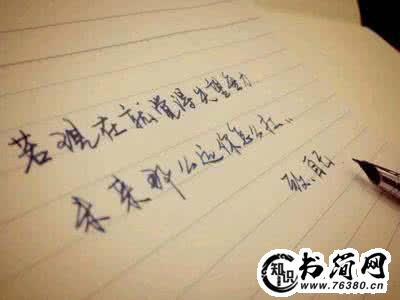 若现在就觉得失望无力
未来那么远你怎么扛..
致.自己
知识
书简网
www.76380.cn